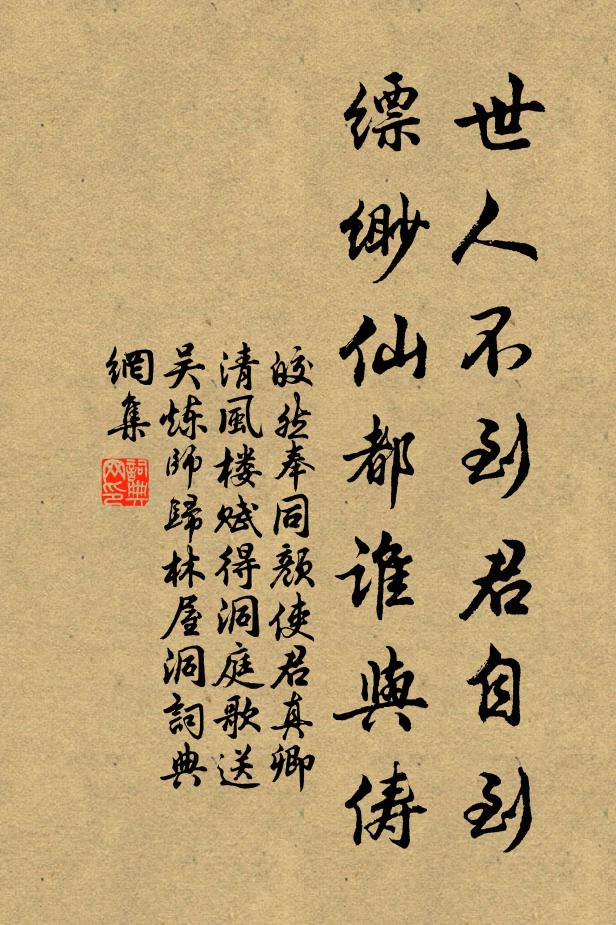 世人不到君自到
缥缈仙都谁與俦
皎然奉同颜使君真卿
清風楼赋得洞庭歌送
吴炼师歸林屋洞詞典
網集
詞典網印